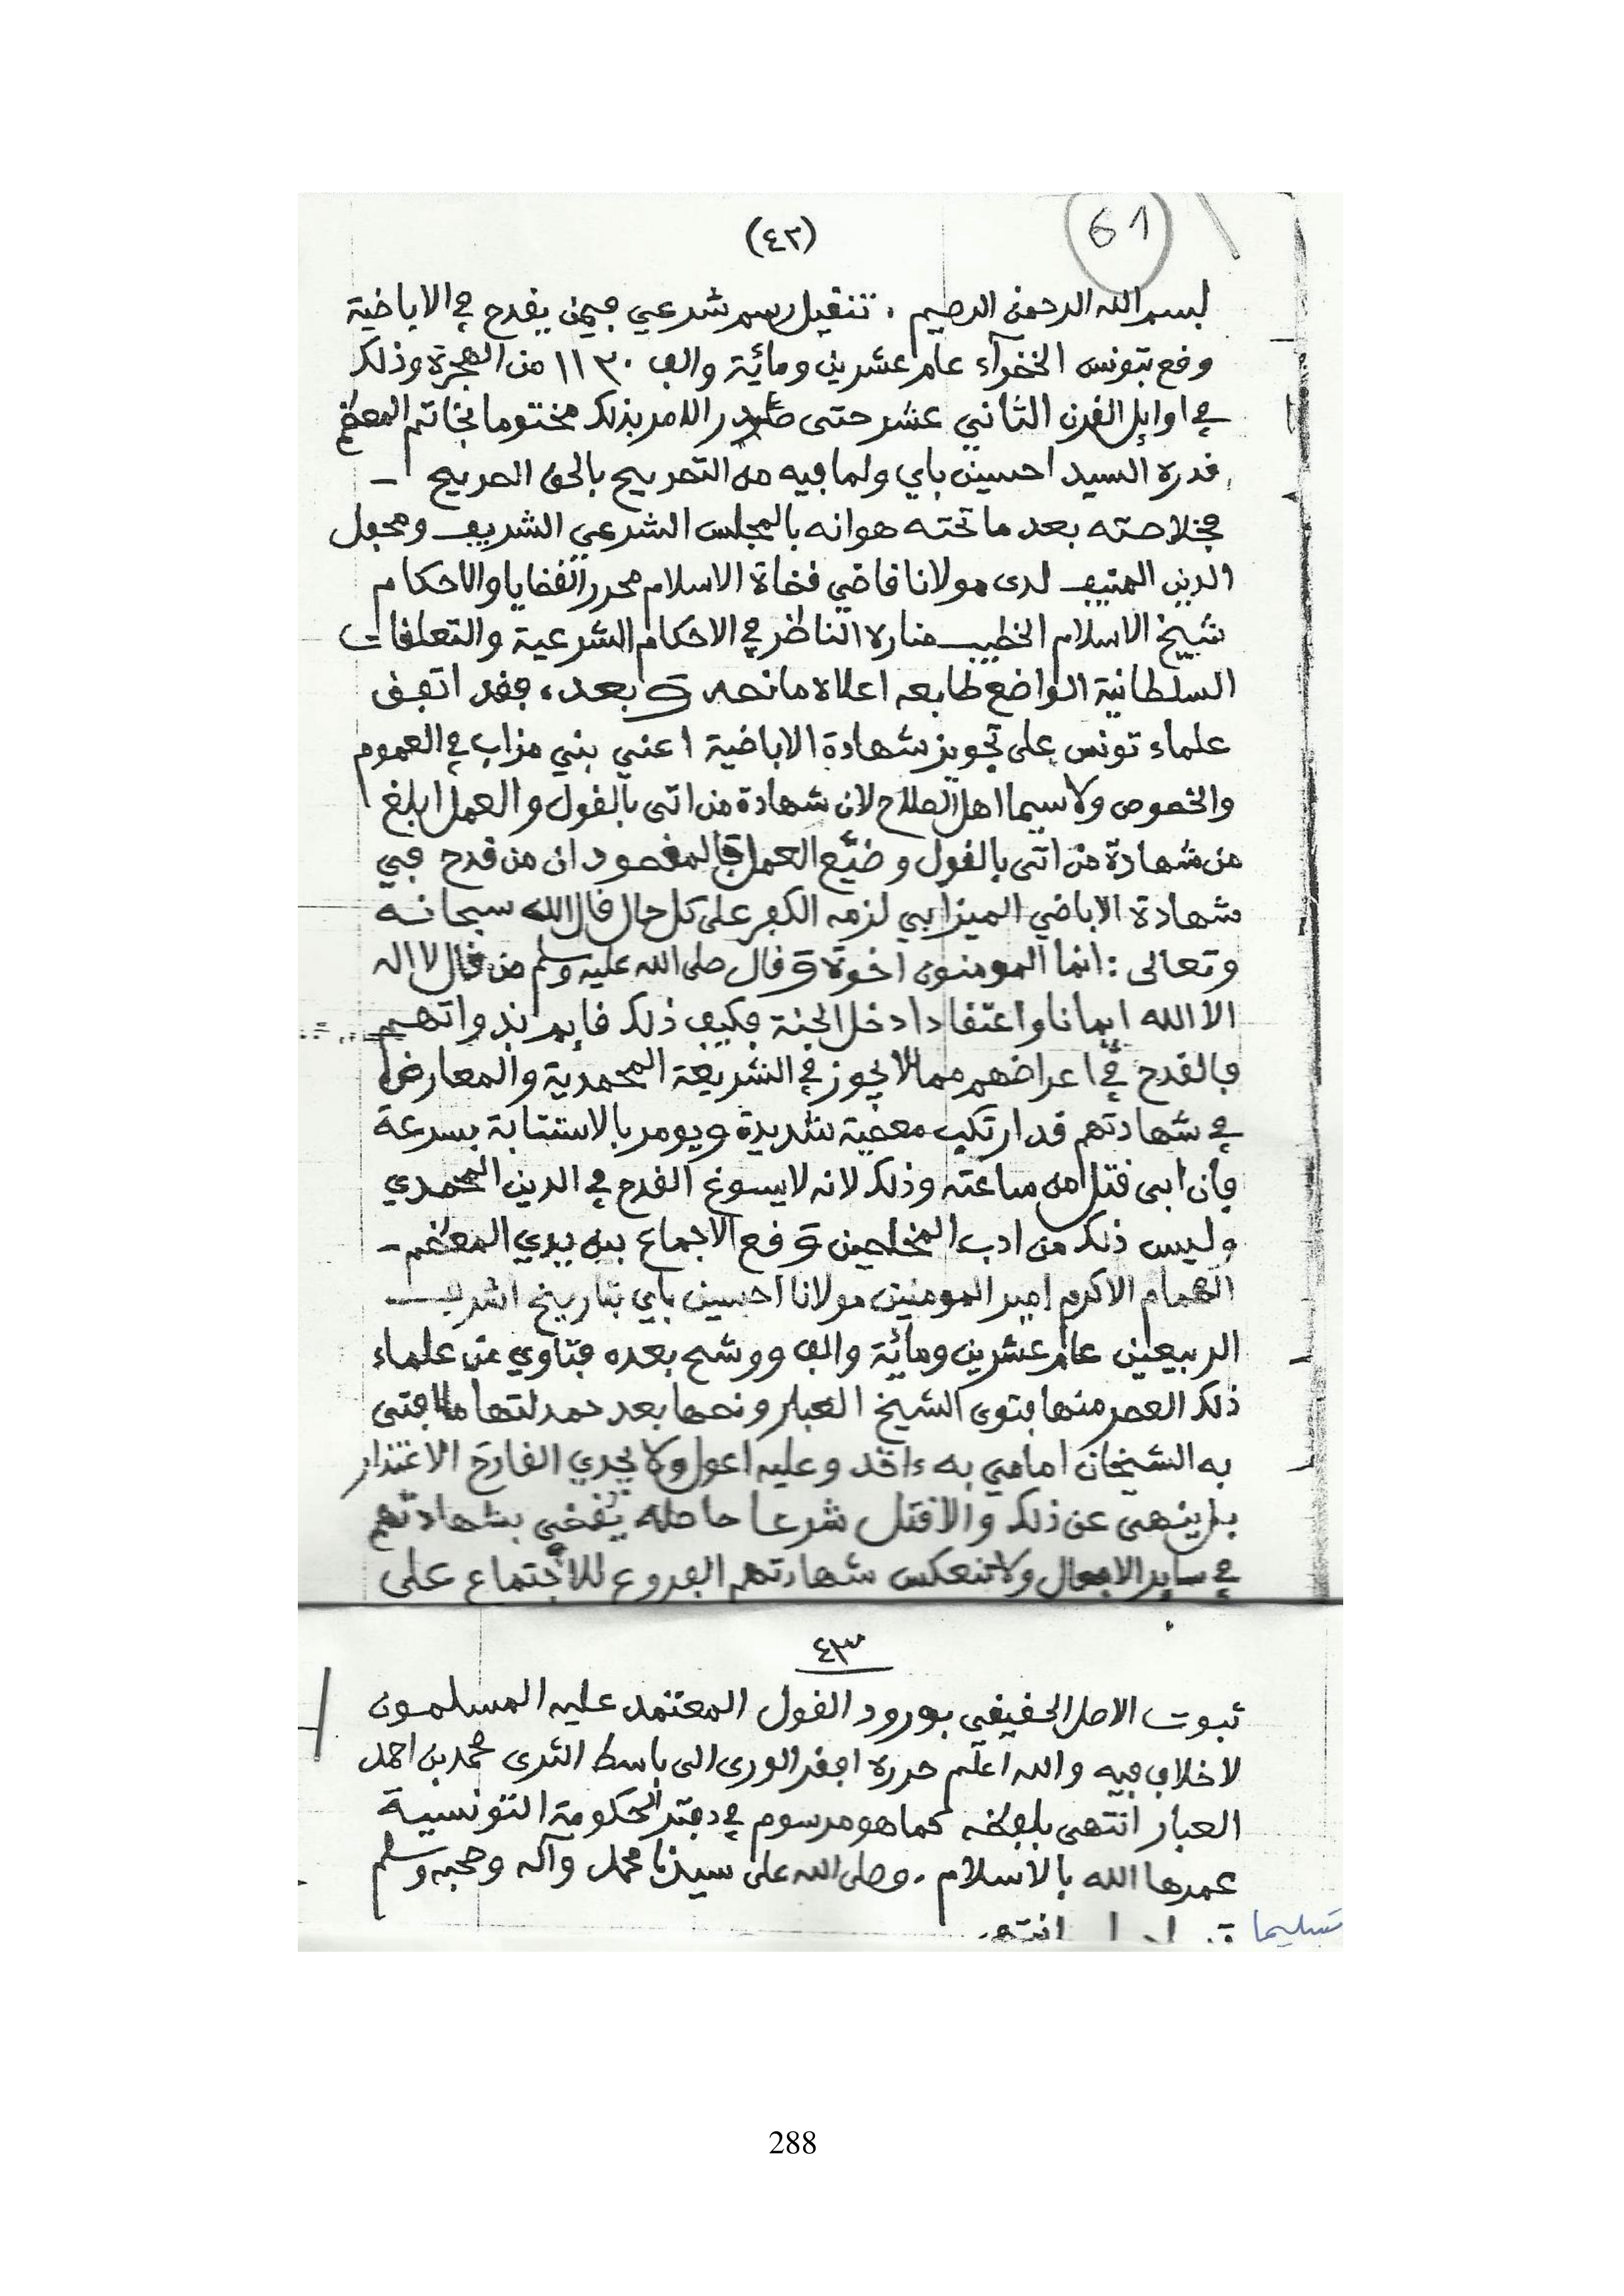 61
(٤٢)
بسم الله الرحمن الرحيم . تنقيل رسم شرعي فيمن يقدح في الاباضية
وقع بتونس الخضرآء عام عشرين ومائية والف ١١٢٠ من الهجرة وذلك
في اوايل القرن الثاني عشر حتى صدر الامر بذلك مختوما بخاتم المعظم
قدره السيد احسين باي ولما فيه من التصريح بالحق الصريح –
فخلاصته بعد ما تحته هوانه بالمجلس الشرعي الشريف ومحفل
الدين المنيف لدى مولانا قاضي قضاة الاسلام محرر القضايا والاحكام
شيخ الاسلام الخطيب مناره الناظر في الاحكام الشرعية والتعلقات
السلطانية الواضع طابعه اعلاه ما نصه وبعد ، فقد اتفق
علماء تونس على تجويز شهادة الاباضية اعني بني مزاب في العموم
والخصوص ولا سيما اهل الصلاح لان شهادة من اتى بالقول والعمل ابلغ
من شهادة من اتى بالقول وضيّع العمل فالمقصود ان من قدح في
شهادة الاباضي الميزابي لزمه الكفر على كل حال قال الله سبحانه
وتعالى : انما المومنون اخوة وقال صلى الله عليه وسلم من قال لا اله
الا الله ايمانا واعتقادا دخل الجنة فكيف ذلك قايم بذواتهم
فالقدح في اعراضهم مما لا يجوز في الشريعة المحمدية والمعارض
في شهادتهم قد ارتكب معصية شديدة ويومر بالاستتابة بسرعة
فان ابى قتل من ساعته وذلك لانه لا يسوغ القدح في الدين المحمدي
وليس ذلك من ادب المخلصين وقع الاجماع بين يدي المعظم –
الهمام الاكرم امير المومنين مولانا احسين باي بتاريخ اشرف
الربيعين عام عشرين ومائية والف ووشح بعده فتاوي من علماء
ذلك العصر منها فتوى الشيخ العبار ونصها بعد حمدلتها ما افتى
به الشيخان امامي به ءاخذ وعليه اعول ولا يجدي القادح الاعتذار
بل ينهى عن ذلك والا قتل شرعا حاصله يقضي بشهادتهم
في ساير الافعال ولا تنعكس شهادتهم الفروع للاجتماع على
٤٣
ثبوت الاصل الحقيقي بورود القول المعتمد عليه المسلمون
لا خلاف فيه والله اعلم حرره افقر الورى الى باسط الثرى محمد بن احمد
العبار انتهى بلفظه كما هو مرسوم في دفتر الحكومة التونسية
عمرها الله بالاسلام . وصلى الله على سيدنا محمد وآله وصحبه وسلم
تسليما
انتهى
288